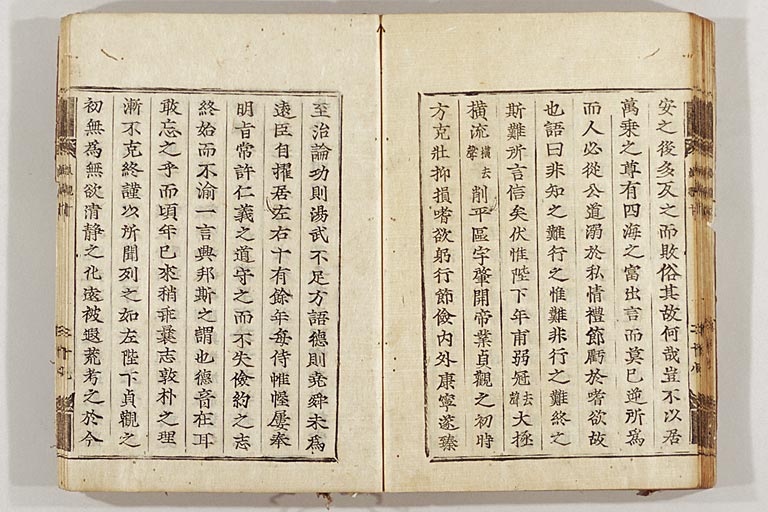 安之後多反之而敗俗其故何哉豈不以居
萬乗之尊有四海之富出言而莫已逆所爲
而人必從公道溺於私情禮節虧於嗜欲故
也語曰非知之難行之惟難非行之難終之
斯難所言信矣伏惟陛下年甫弱冠去聲大拯
橫流橫去聲削平區宇肇開帝業貞觀之初時
方克壯抑損嗜欲躬行節儉內外康寧遂臻
至治論功則湯武不足方語德則堯舜未爲
遠臣自擢居左右十有餘年每侍帷幄屢奉
明旨常許仁義之道守之而不失儉約之志
終始而不渝一言興邦斯之謂也德音在耳
敢忘之乎而頃年已來稍乖曩志敦朴之理
漸不克終謹以所聞列之如左陛下貞觀之
初無爲無欲淸静之化遠被遐荒考之於今